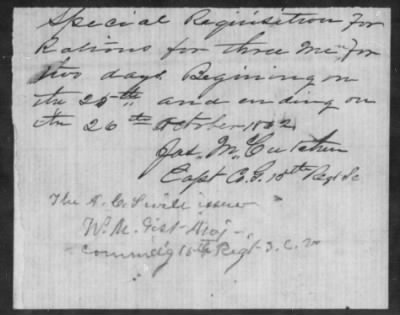 Special Requisition For
Rations for three Men For
two days Begining on
the 25th and ending on
the 26th October 1862
Jas. McCutchen
Capt Co. G. 15th Regt SC
The A.C.S will issue
W. M. Gist Maj -
commd'g 15th Regt S.C.V